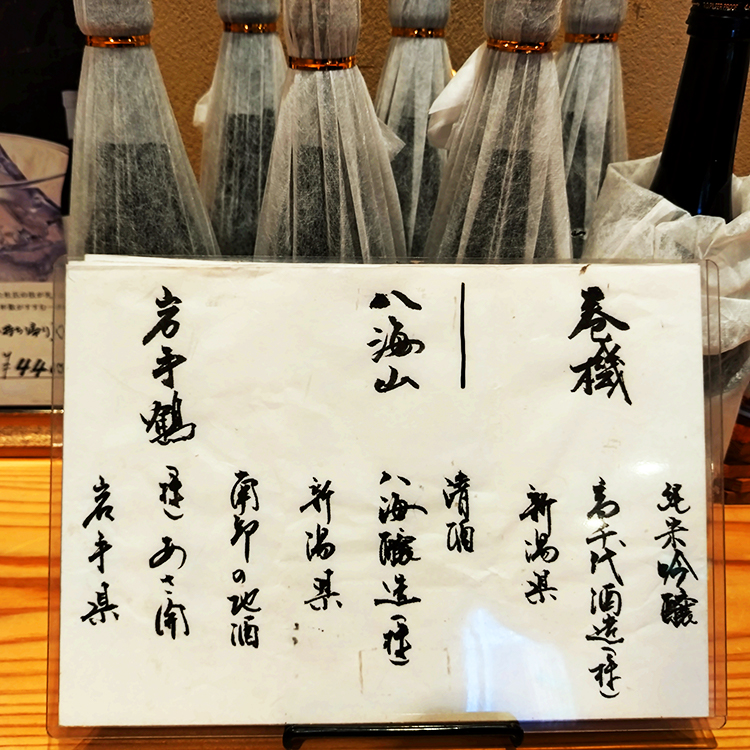 巻機
純米吟醸
高千代酒造(株)
新潟県
八海山
清酒
八海醸造(株)
新潟県
岩手鶴
南部の地酒
(株)あさ開
岩手県
¥440